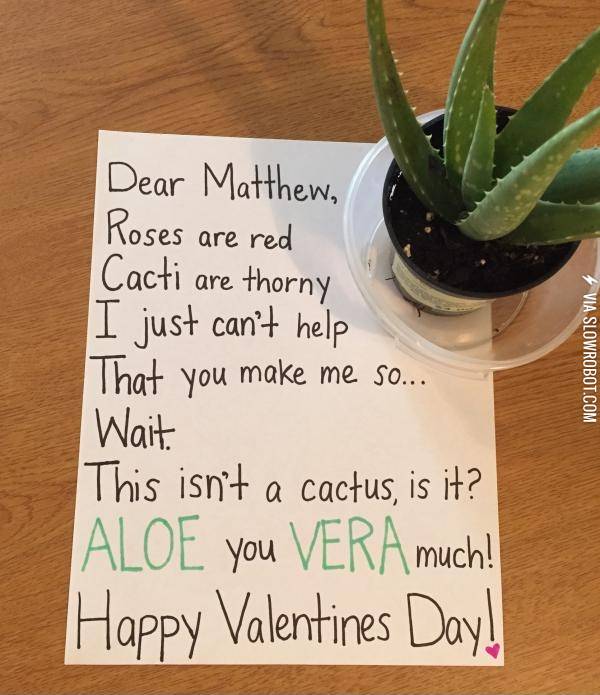 Dear Matthew,
Roses are red
Cacti are thorny
I just can't help
That you make me so...
Wait.
This isn't a cactus, is it?
ALOE you VERA much!
Happy Valentines Day!
VIA SLOWROBOT.COM